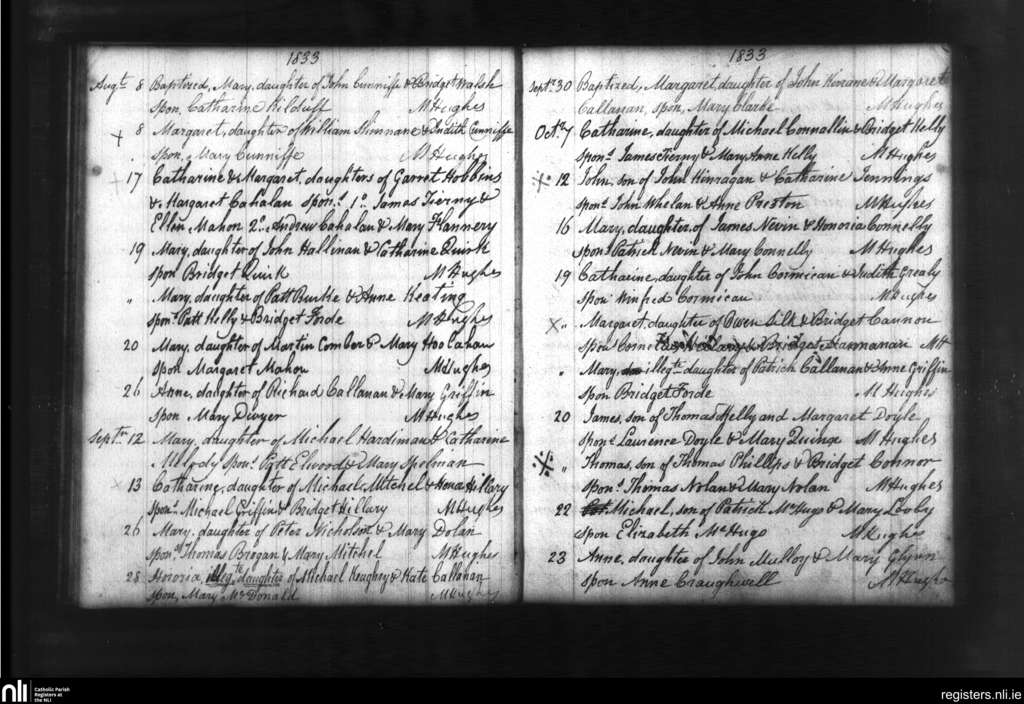 1833
Augt. 8 Baptized, Mary, daughter of John Cunniffe & Bridget Walsh
Spon. Catharine Kilduff MHughes
+ 8 Margaret, daughter of William Shinnane & Judith Cunniffe
spon. Mary Cunniffe MHughes
17 Catharine & Margaret, daughters of Garret Hobbins
& Margaret Cahalan Spon.s 1o. James Tierny &
Ellen Mahon 2o. Andrew Cahalan & Mary Flannery
19 Mary, daughter of John Hallinan & Catharine Quirk
Spon Bridget Quirk MHughes
" Mary, daughter of Patt Burke & Anne Keating
spon.s Patt Kelly & Bridget Forde MHughes
20 Mary, daughter of Martin Comber & Mary Hoolahan
Spon Margaret Mahon MHughes
26 Anne, daughter of Richard Callanan & Mary Griffin
Spon. Mary Dwyer MHughes
Septr. 12 Mary, daughter of Michael Hardiman & Catharine
Melody Spon.s Patt Elwood & Mary Spelman
× 13 Catharine, daughter of Michael Mitchel & Hillary
Spon.s Michael Griffin & Bridget Hillary MHughes
26 Mary, daughter of Peter Nicholson & Mary Dolan
Spon.s Thomas Brogan & Mary Mitchel MHughes
28 Honoria, illegte. daughter of Michael Keughry & Kate Callanan
spon. Mary McDonald MHughes
1833
Septr. 30 Baptized, Margaret, daughter of John Kerane & Margaret
Callanan, spon. Mary Clarke MHughes
Octr. 7 Catharine, daughter of Michael Connallin & Bridget Kelly
spon.s James Tierny & Mary Anne Kelly MHughes
※ 12 John, son of John Kinragan & Catharine Jennings
spon.s John Whelan & Anne Preston MHughes
16 Mary, daughter of James Nevin & Honoria Connelly
Spon.s Patrick Nevin & Mary Connelly MHughes
19 Catharine, daughter of John Cormican & Judith Grealy
Spon Winfred Cormican MHughes
× " Margaret, daughter of Owen Silk & Bridget Cannon
Spon.s & Bridget MH
" Mary, illegte. daughter of Patrick Callanan & Anne Griffin
Spon Bridget Forde MHughes
20 James, son of Thomas Kelly and Margaret Doyle
Spon.s Laurence Doyle & Mary Quinn MHughes
※ " Thomas, son of Thomas Phillips & Bridget Connor
Spon.s Thomas Nolan & Mary Nolan MHughes
22 Michael, son of Patrick McHugo & Mary Looby
spon Elizabeth McHugo MHughes
23 Anne, daughter of John Mulloy & Mary Glynn
Spon Anne Craughwell MHughes
nli
Catholic Parish
Registers at
the NLI
registers.nli.ie